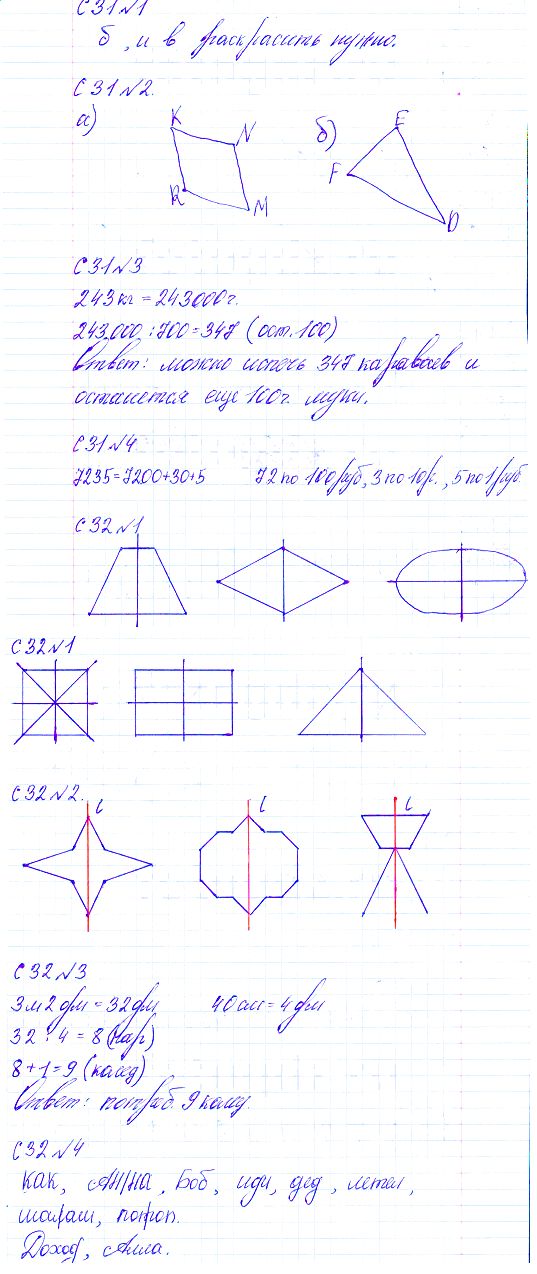 С31№1
б, и в раскрасить нужно.
С31№2.
а)
K
N
R
M
б)
E
F
D
С31№3
243кг = 243000г.
243.000 : 700 = 347 (ост. 100)
Ответ: можно испечь 347 караваев и
останется еще 100г. муки.
С31№4
7235=7200+30+5 72 по 100руб, 3 по 10р., 5 по 1руб.
С32№1
С32№1
С32№2.
l
l
l
С32№3
3м2дм = 32дм 40см = 4дм
32 : 4 = 8 (пар)
8+1=9 (колод)
Ответ: потреб. 9 колод.
С32№4
как, Анна, Боб, иди, дед, летел,
шалаш, потоп.
Доход, Алла.